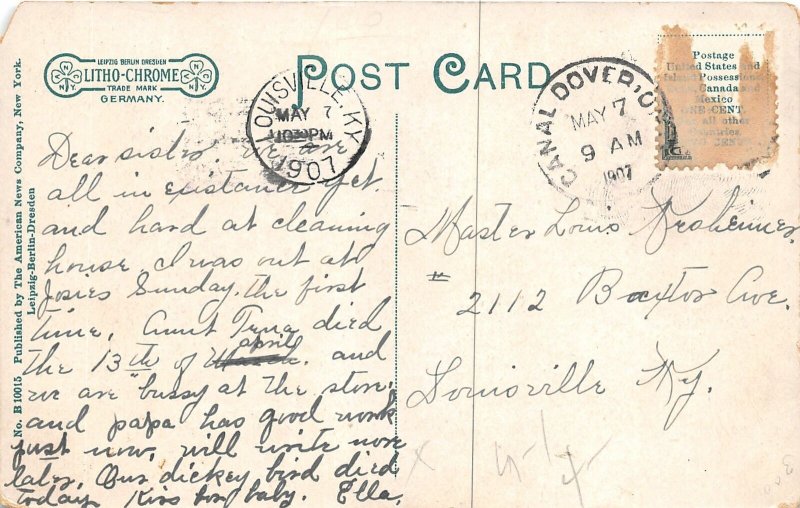 POST CARD
LEIPZIG BERLIN DRESDEN
LITHO-CHROME
TRADE MARK
GERMANY.
No. B 10015 Published by The American News Company, New York.
Leipzig-Berlin-Dresden
LOUISVILLE, KY.
MAY 7
PM
1907
CANAL DOVER, O.
MAY 7
9 AM
1907
Postage
United States and
Island Possessions
Canada and
Mexico
ONE CENT.
For all other
Countries
CENT
Dear sister, we are
all in existance yet
and hard at cleaning
house. I was out at
Josies Sunday. the first
time, Aunt Tena died
the 13th of april. and
we are bussy at the store.
and papa has good work
just now, will write more
later. Our dickey bird died
today. Kiss for baby. Ella.
Master Louis
2112 Baxtor Ave.
Louisville Ky.